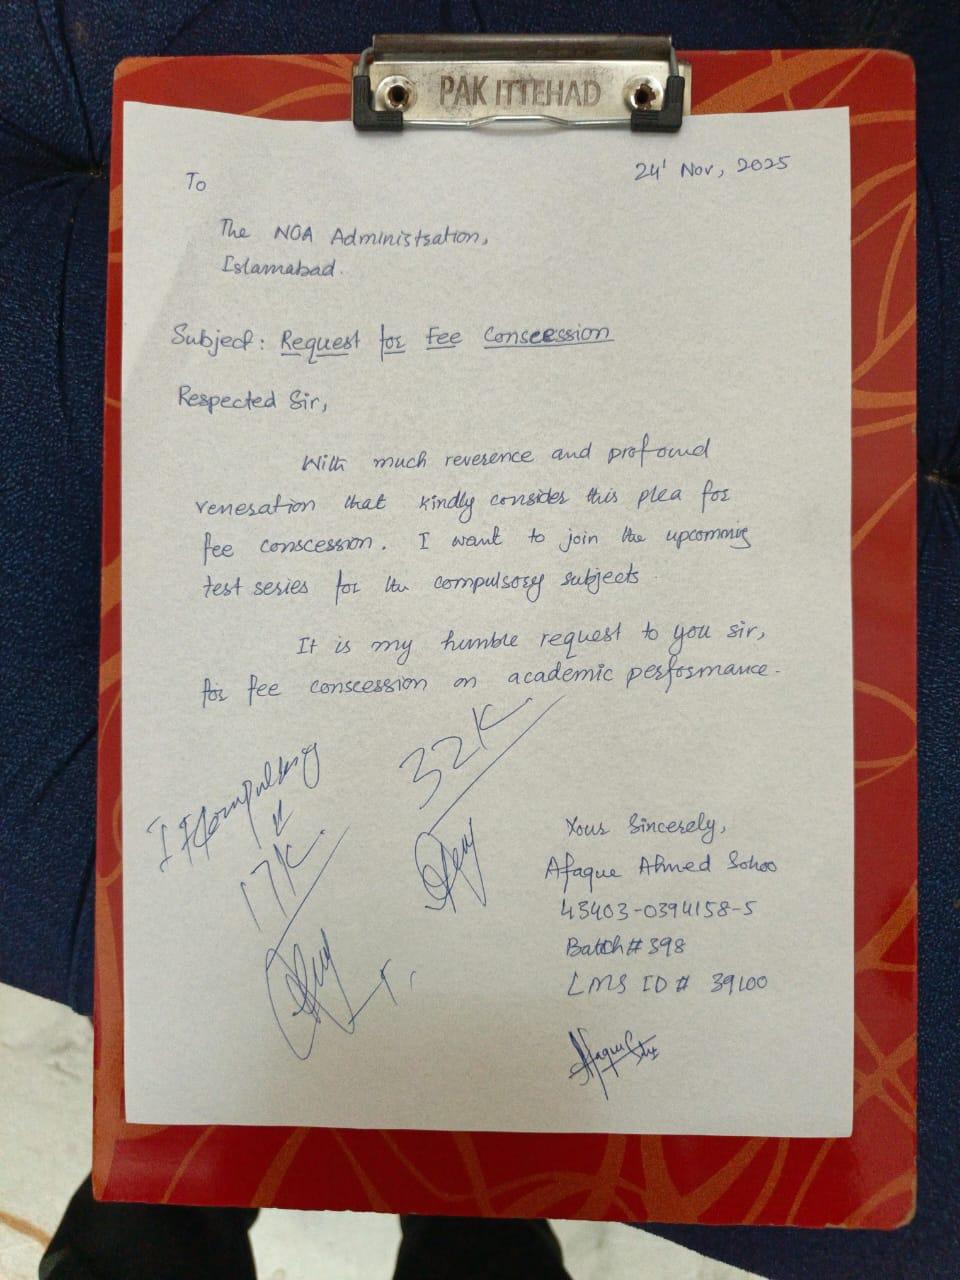 PAK ITTEHAD
24' Nov, 2025
To
The NOA Administration,
Islamabad.
Subject: Request for Fee Conscession
Respected Sir,
With much reverence and profound
veneration that kindly consider this plea for
fee conscession. I want to join the upcomming
test series for the compulsory subjects.
It is my humble request to you sir,
for fee conscession on academic performance.
32K
Compulsory
17K
Your Sincerely,
Afaque Ahmed Sohoo
43403-0394158-5
Batch # 398
LMS ID # 39100